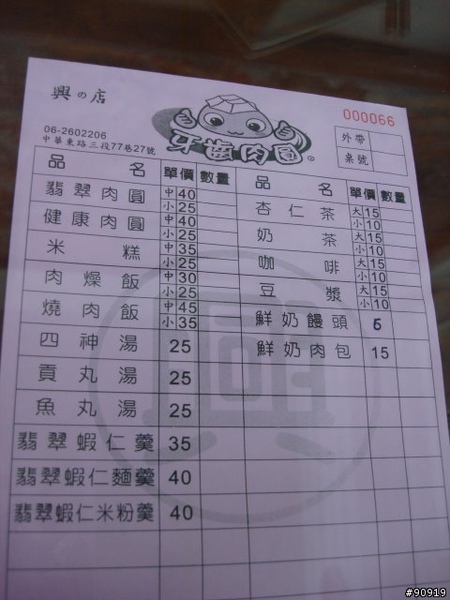 興の店
000066
牙齒肉圓
06-2602206
中華東路三段77巷27號
外帶
桌號
品名 單價 數量
翡翠肉圓 中40 小25
健康肉圓 中40 小25
米糕 中35 小25
肉燥飯 中30 小25
燒肉飯 中45 小35
四神湯 25
貢丸湯 25
魚丸湯 25
翡翠蝦仁羹 35
翡翠蝦仁麵羹 40
翡翠蝦仁米粉羹 40
品名 單價 數量
杏仁茶 大15 小10
奶茶 大15 小10
咖啡 大15 小10
豆漿 大15 小10
鮮奶饅頭 6
鮮奶肉包 15
興
#90919